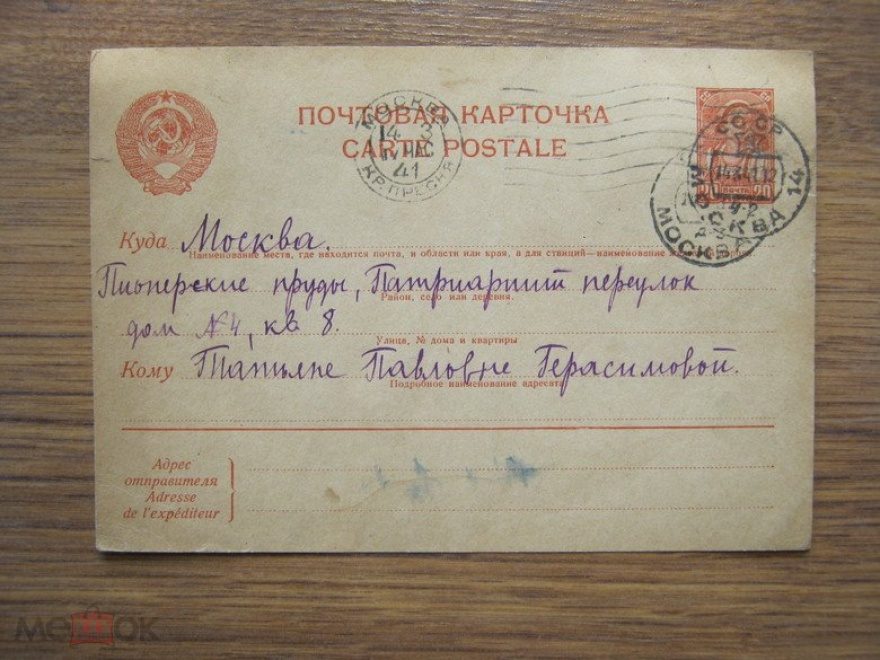 ПОЧТОВАЯ КАРТОЧКА
CARTE POSTALE
МОСКВА
14 3
41
КР. ПРЕСНЯ
СССР
20 ПОЧТА 20
МОСКВА
МОСКВА 14
Куда Москва.
Наименование места, где находится почта, и области или края, а для станций—наименование
Пионерские пруды, Патриарший переулок
Район, село или деревня.
дом №4, кв 8.
Улица, № дома и квартиры
Кому Татьяне Павловне Герасимовой.
Подробное наименование адресата
Адрес
отправителя
Adresse
de l'expéditeur
мешок